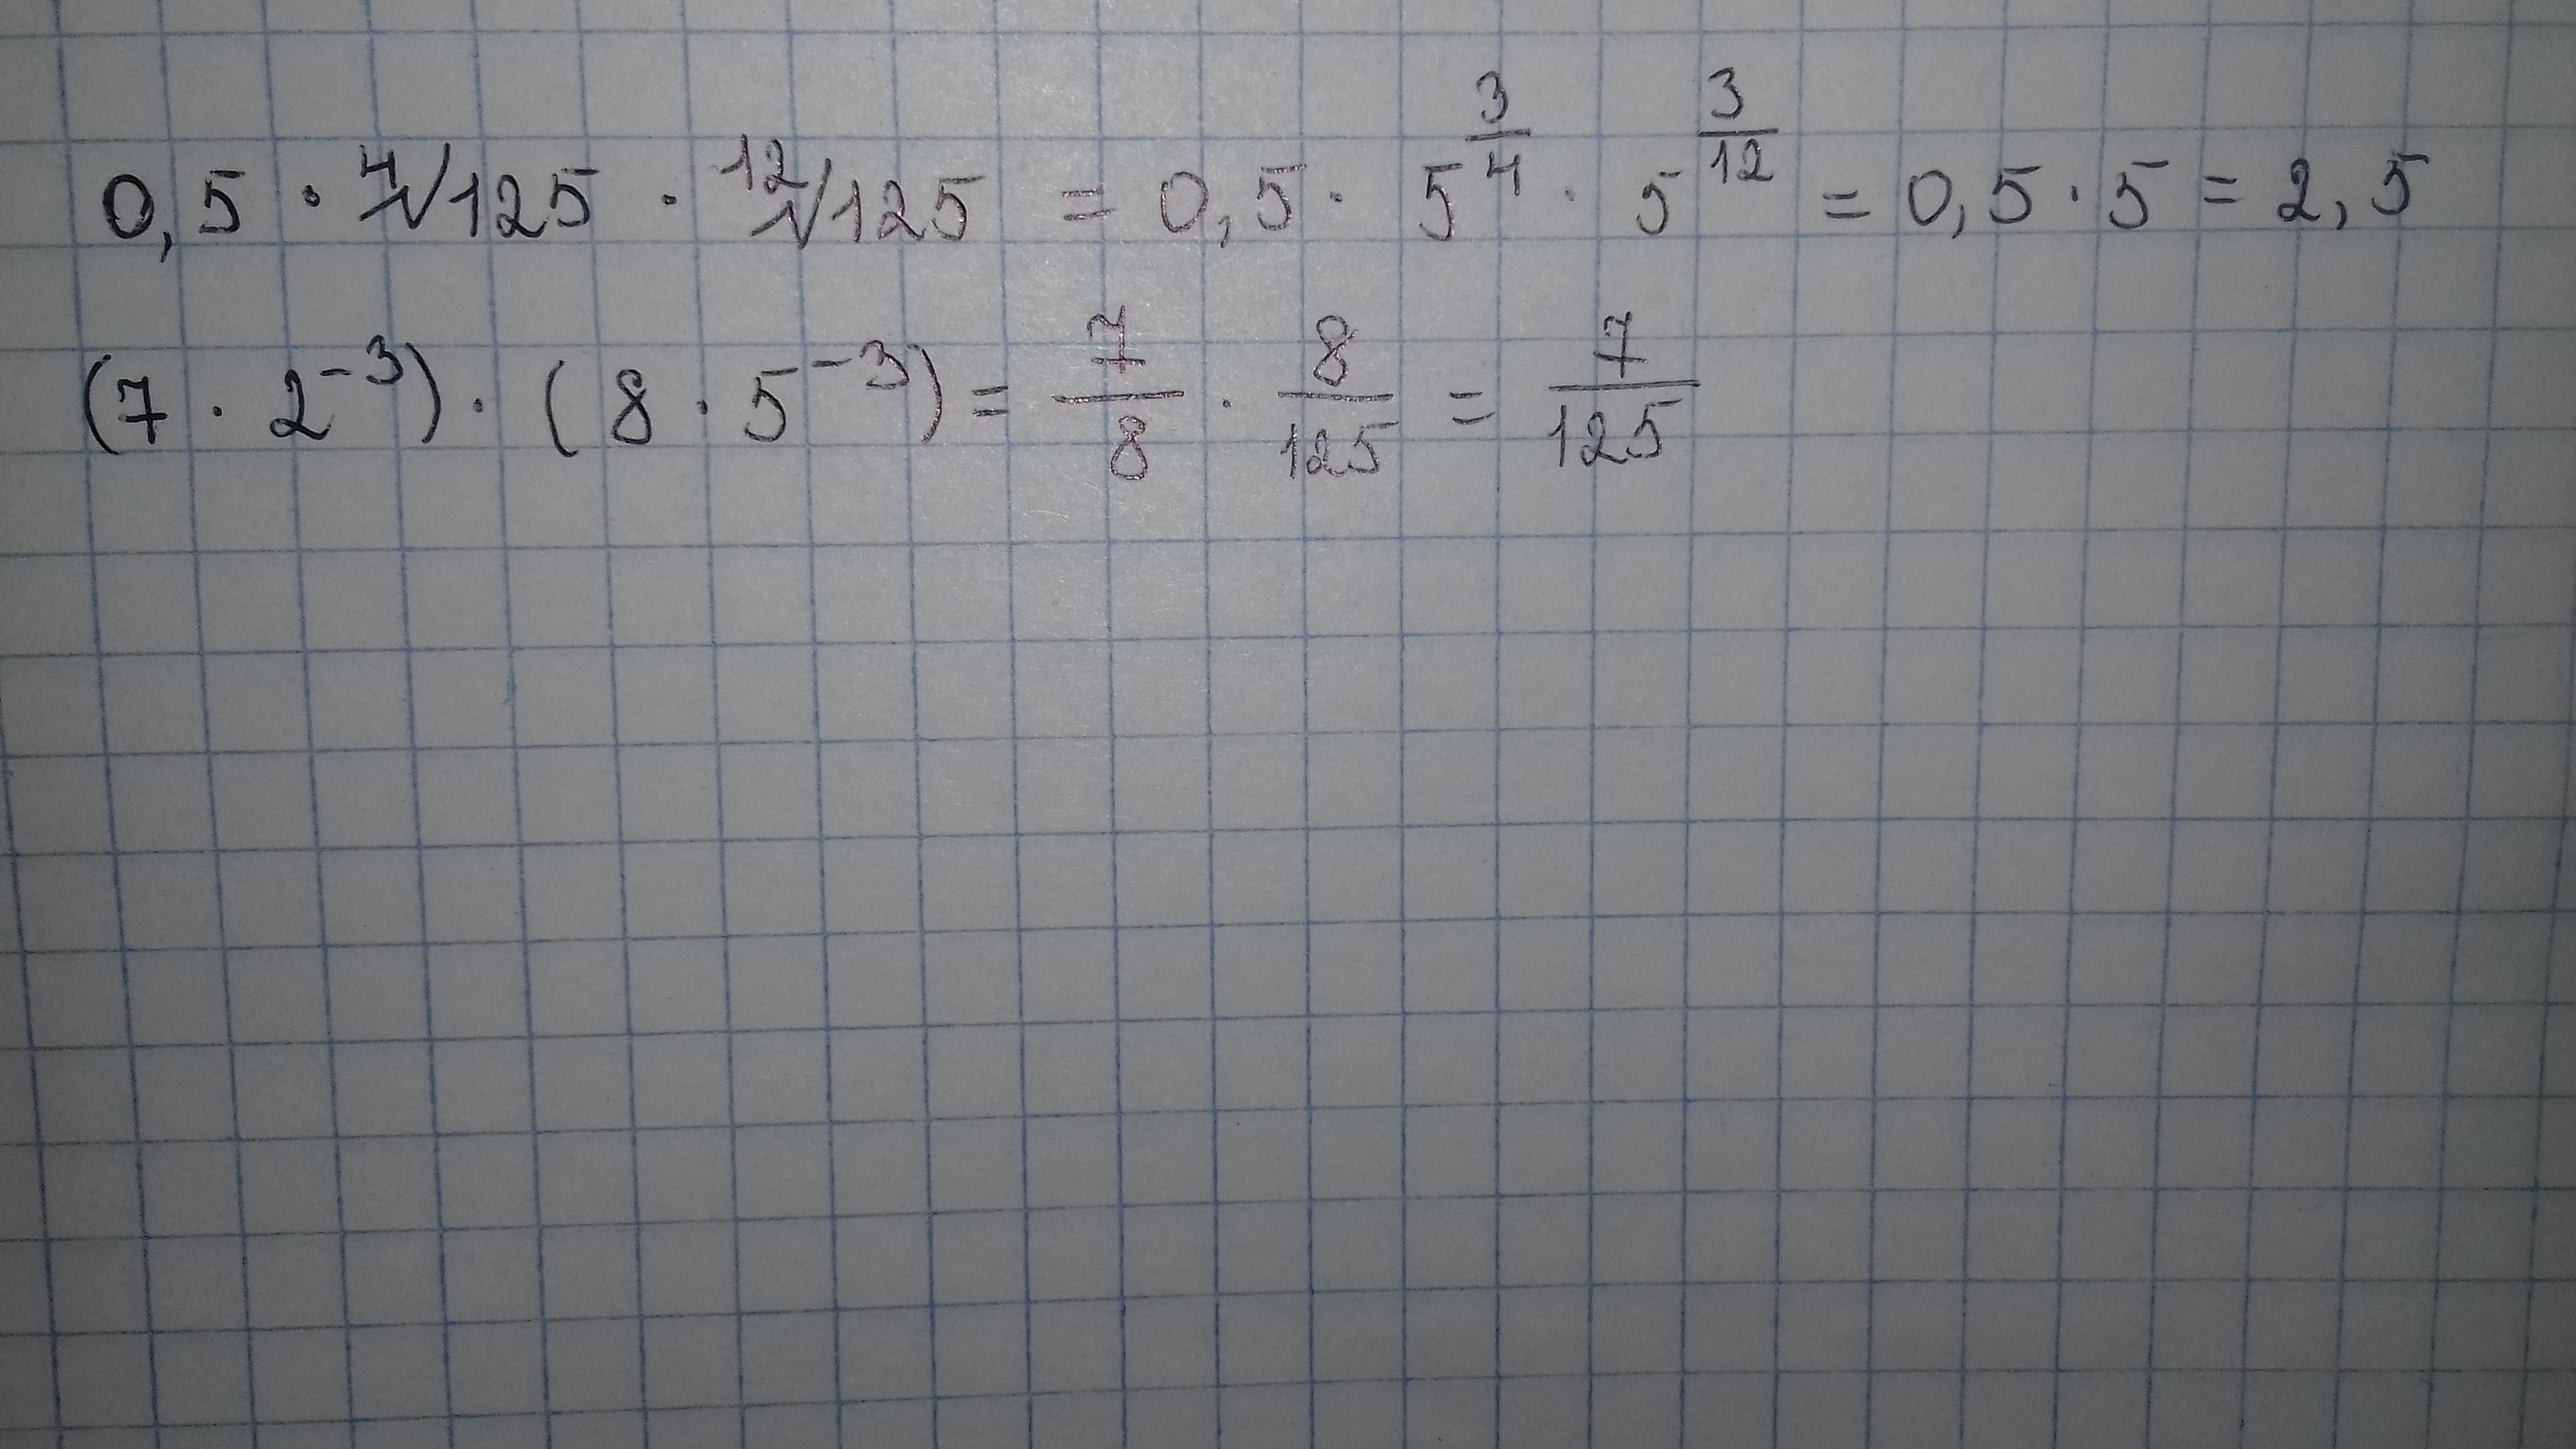 0,5 · ⁴√125 · ¹²√125 = 0,5 · 5^(3/4) · 5^(3/12) = 0,5 · 5 = 2,5
(7 · 2⁻³) · (8 · 5⁻³) = 7/8 · 8/125 = 7/125